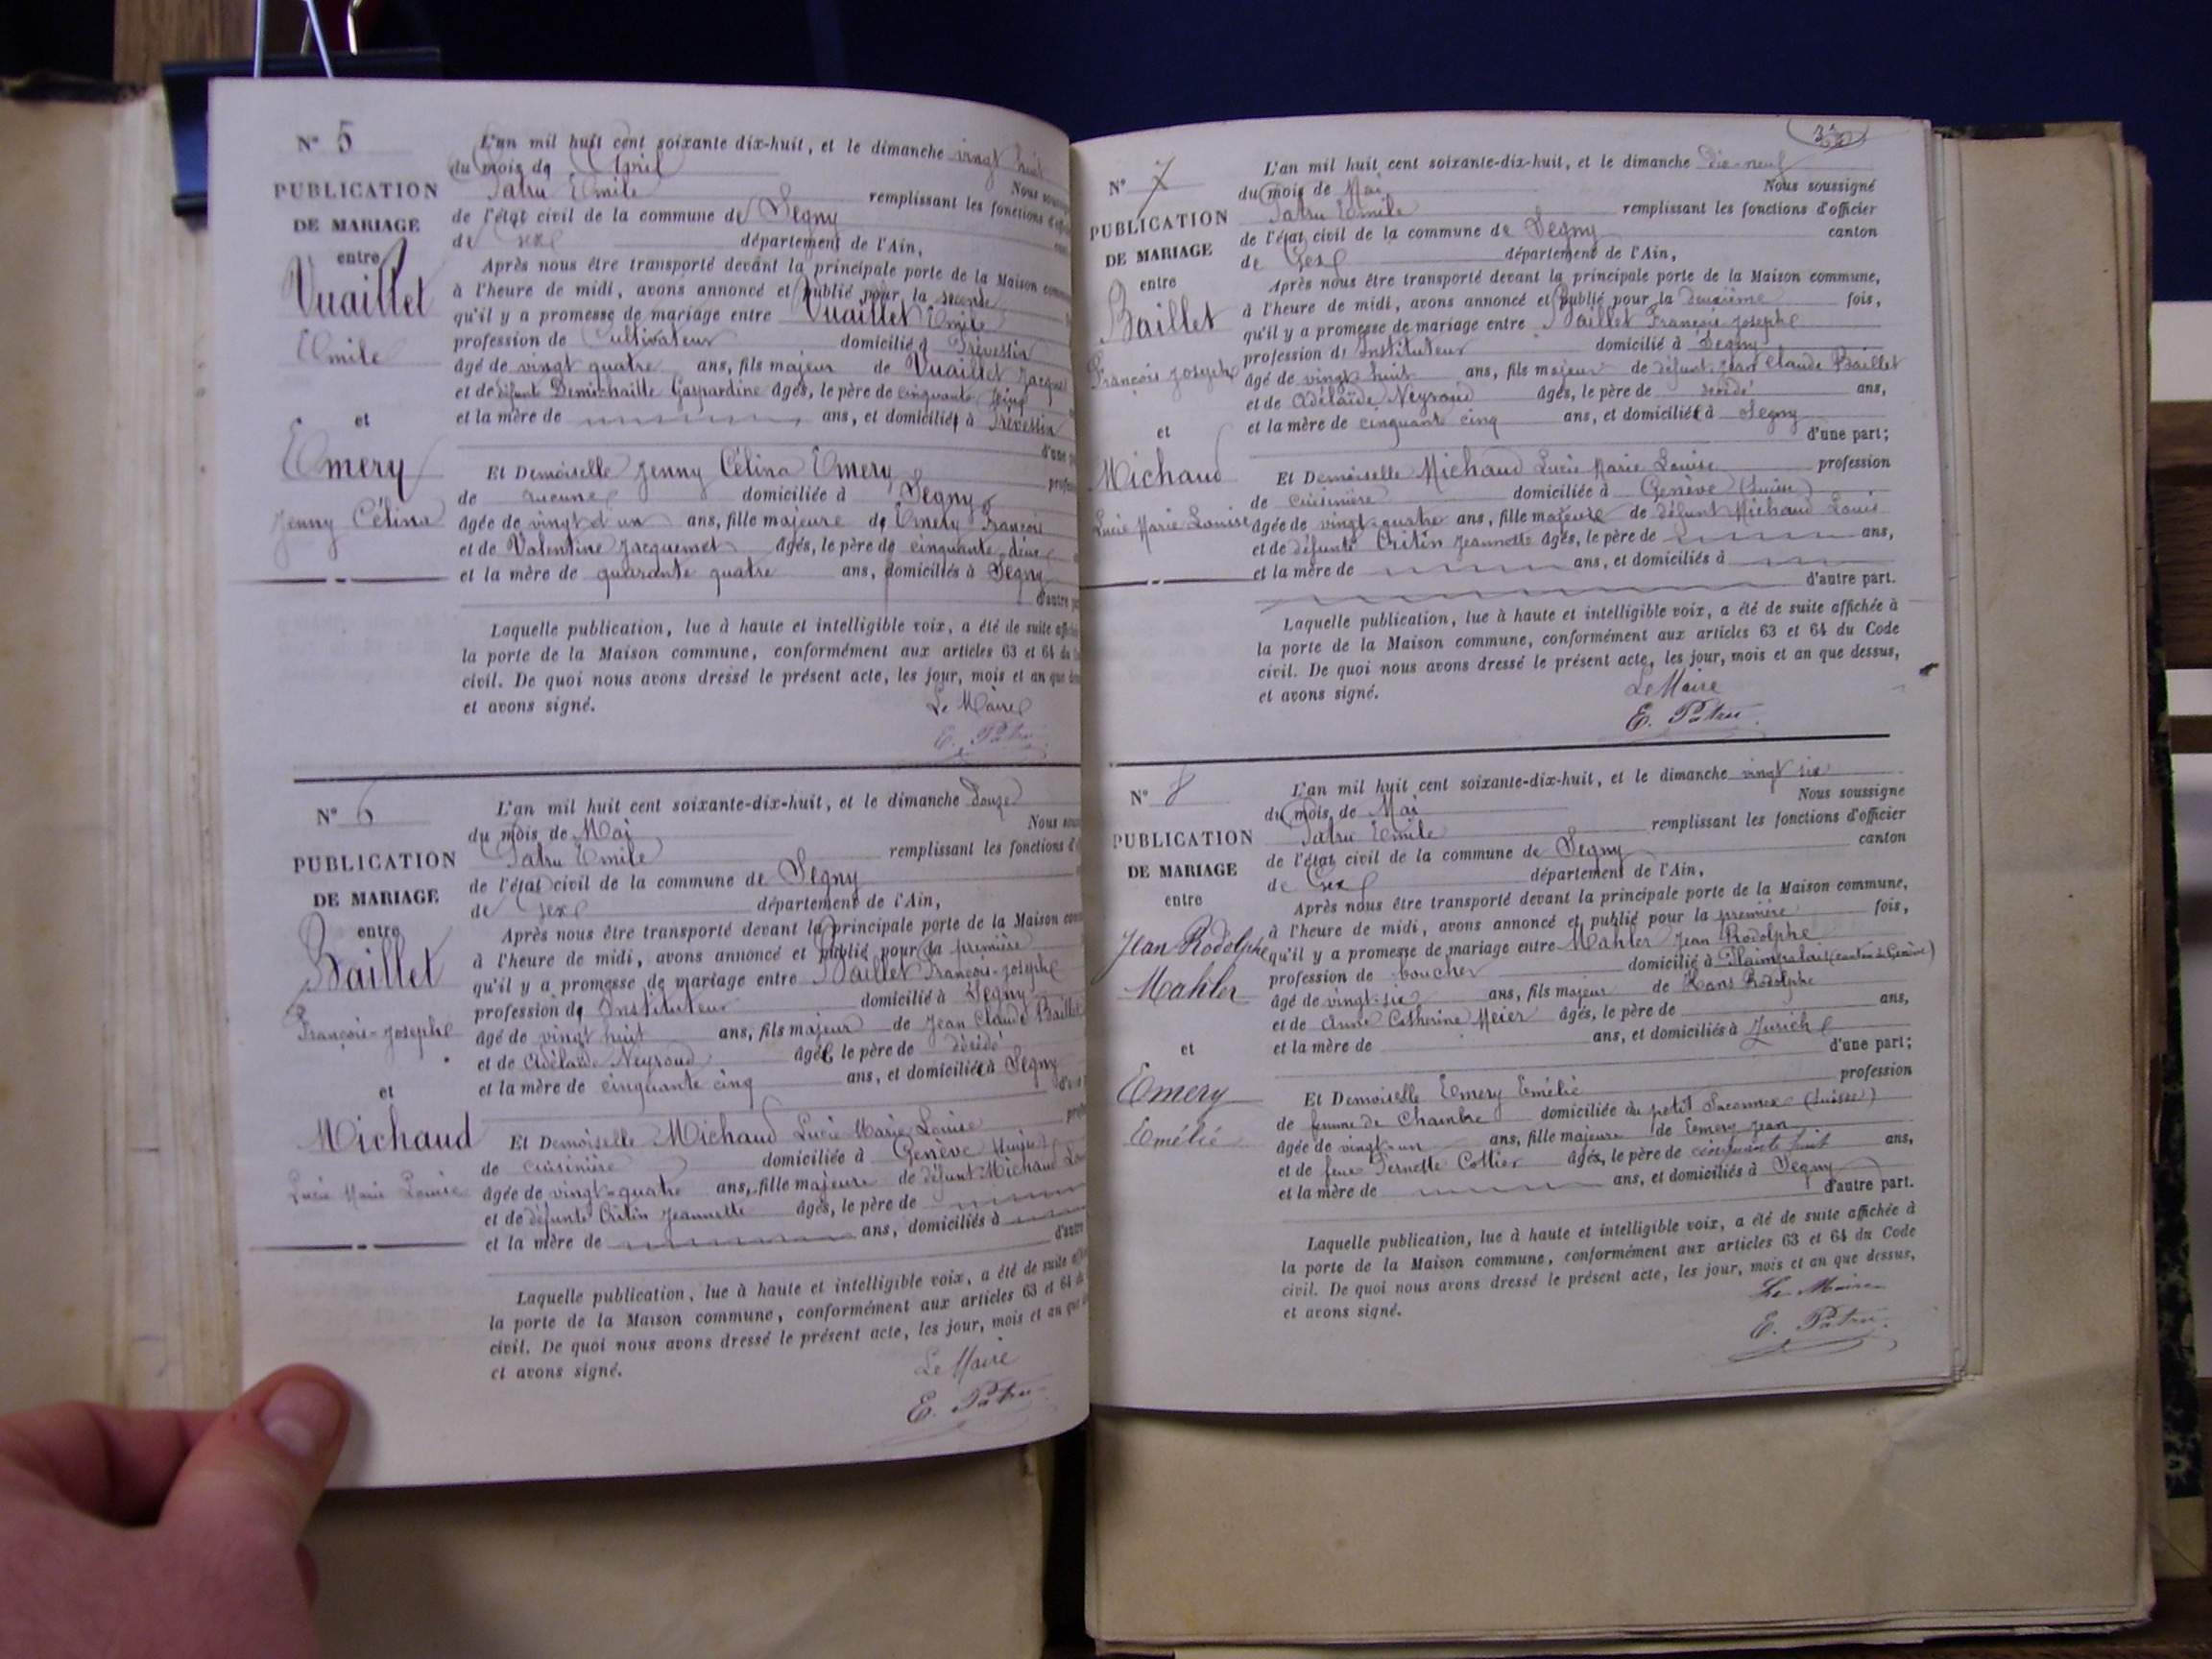 N° 5
PUBLICATION
DE MARIAGE
entre
Vuaillet
Emile
et
Emery
Jenny Célina
L'an mil huit cent soixante dix-huit, et le dimanche vingt huit
du mois de Avril Nous
Patru Emile remplissant les fonctions
de l'état civil de la commune de Segny
de Gex département de l'Ain,
Après nous être transporté devant la principale porte de la Maison
à l'heure de midi, avons annoncé et publié pour la seconde
qu'il y a promesse de mariage entre Vuaillet Emile
profession de Cultivateur domicilié à Prévessin
âgé de vingt quatre ans, fils majeur de Vuaillet Jacques
et de défunte Gaspardine âgés, le père de cinquante cinq
et la mère de ans, et domiciliés à Prévessin
d'une
Et Demoiselle Jenny Célina Emery
de aucune domiciliée à Segny
âgée de vingt et un ans, fille majeure de Emery François
et de Valentine Jacquemet âgés, le père de cinquante deux
et la mère de quarante quatre ans, domiciliés à Segny
d'autre
Laquelle publication, lue à haute et intelligible voix, a été de suite
la porte de la Maison commune, conformément aux articles 63 et 64 du
civil. De quoi nous avons dressé le présent acte, les jour, mois et an que
et avons signé.
Le Maire
E. Patru
N° 6
PUBLICATION
DE MARIAGE
entre
Baillet
François-Josephe
et
Michaud
Lucie Marie Louise
L'an mil huit cent soixante-dix-huit, et le dimanche douze
du mois de Mai Nous
Patru Emile remplissant les fonctions
de l'état civil de la commune de Segny
de Gex département de l'Ain,
Après nous être transporté devant la principale porte de la Maison
à l'heure de midi, avons annoncé et publié pour la première
qu'il y a promesse de mariage entre Baillet François-Josephe
profession de Instituteur domicilié à Segny
âgé de vingt huit ans, fils majeur de Jean Claude Baillet
et de Adélaïde Neyroud âgés, le père de décédé
et la mère de cinquante cinq ans, et domiciliée à Segny
Et Demoiselle Michaud Lucie Marie Louise
de cuisinière domiciliée à Genève (Suisse)
âgée de vingt-quatre ans, fille majeure de défunt Michaud
et de défunte Critin Jeannette âgés, le père de
et la mère de ans, domiciliés à
d'autre
Laquelle publication, lue à haute et intelligible voix, a été de suite
la porte de la Maison commune, conformément aux articles 63 et 64 du
civil. De quoi nous avons dressé le présent acte, les jour, mois et an que
et avons signé.
Le Maire
E. Patru
N° 7
PUBLICATION
DE MARIAGE
entre
Baillet
François Josephe
et
Michaud
Lucie Marie Louise
L'an mil huit cent soixante-dix-huit, et le dimanche dix-neuf
du mois de Mai Nous soussigné
Patru Emile remplissant les fonctions d'officier
de l'état civil de la commune de Segny canton
de Gex département de l'Ain,
Après nous être transporté devant la principale porte de la Maison commune,
à l'heure de midi, avons annoncé et publié pour la deuxième fois,
qu'il y a promesse de mariage entre Baillet François Josephe
profession de Instituteur domicilié à Segny
âgé de vingt huit ans, fils majeur de défunt Jean Claude Baillet
et de Adélaïde Neyroud âgés, le père de décédé ans,
et la mère de cinquante cinq ans, et domiciliée à Segny
d'une part;
Et Demoiselle Michaud Lucie Marie Louise profession
de cuisinière domiciliée à Genève (Suisse)
âgée de vingt-quatre ans, fille majeure de défunt Michaud Louis
et de défunte Critin Jeannette âgés, le père de ans,
et la mère de ans, et domiciliés à
d'autre part.
Laquelle publication, lue à haute et intelligible voix, a été de suite affichée à
la porte de la Maison commune, conformément aux articles 63 et 64 du Code
civil. De quoi nous avons dressé le présent acte, les jour, mois et an que dessus,
et avons signé.
Le Maire
E. Patru
N° 8
PUBLICATION
DE MARIAGE
entre
Jean Rodolphe
Mahler
et
Emery
Emélie
L'an mil huit cent soixante-dix-huit, et le dimanche vingt six
du mois de Mai Nous soussigné
Patru Emile remplissant les fonctions d'officier
de l'état civil de la commune de Segny canton
de Gex département de l'Ain,
Après nous être transporté devant la principale porte de la Maison commune,
à l'heure de midi, avons annoncé et publié pour la première fois,
qu'il y a promesse de mariage entre Mahler Jean Rodolphe
profession de boucher domicilié à Plainpalais (canton de Genève)
âgé de vingt-six ans, fils majeur de Hans Rodolphe
et de Anne Catherine Meier âgés, le père de ans,
et la mère de ans, et domiciliés à Zurich
d'une part;
Et Demoiselle Emery Emélie profession
de femme de Chambre domiciliée au petit Saconnex (Suisse)
âgée de vingt-un ans, fille majeure de Emery Jean
et de feue Pernette Cottier âgés, le père de cinquante huit ans,
et la mère de ans, et domiciliés à Segny
d'autre part.
Laquelle publication, lue à haute et intelligible voix, a été de suite affichée à
la porte de la Maison commune, conformément aux articles 63 et 64 du Code
civil. De quoi nous avons dressé le présent acte, les jour, mois et an que dessus,
et avons signé.
Le Maire
E. Patru